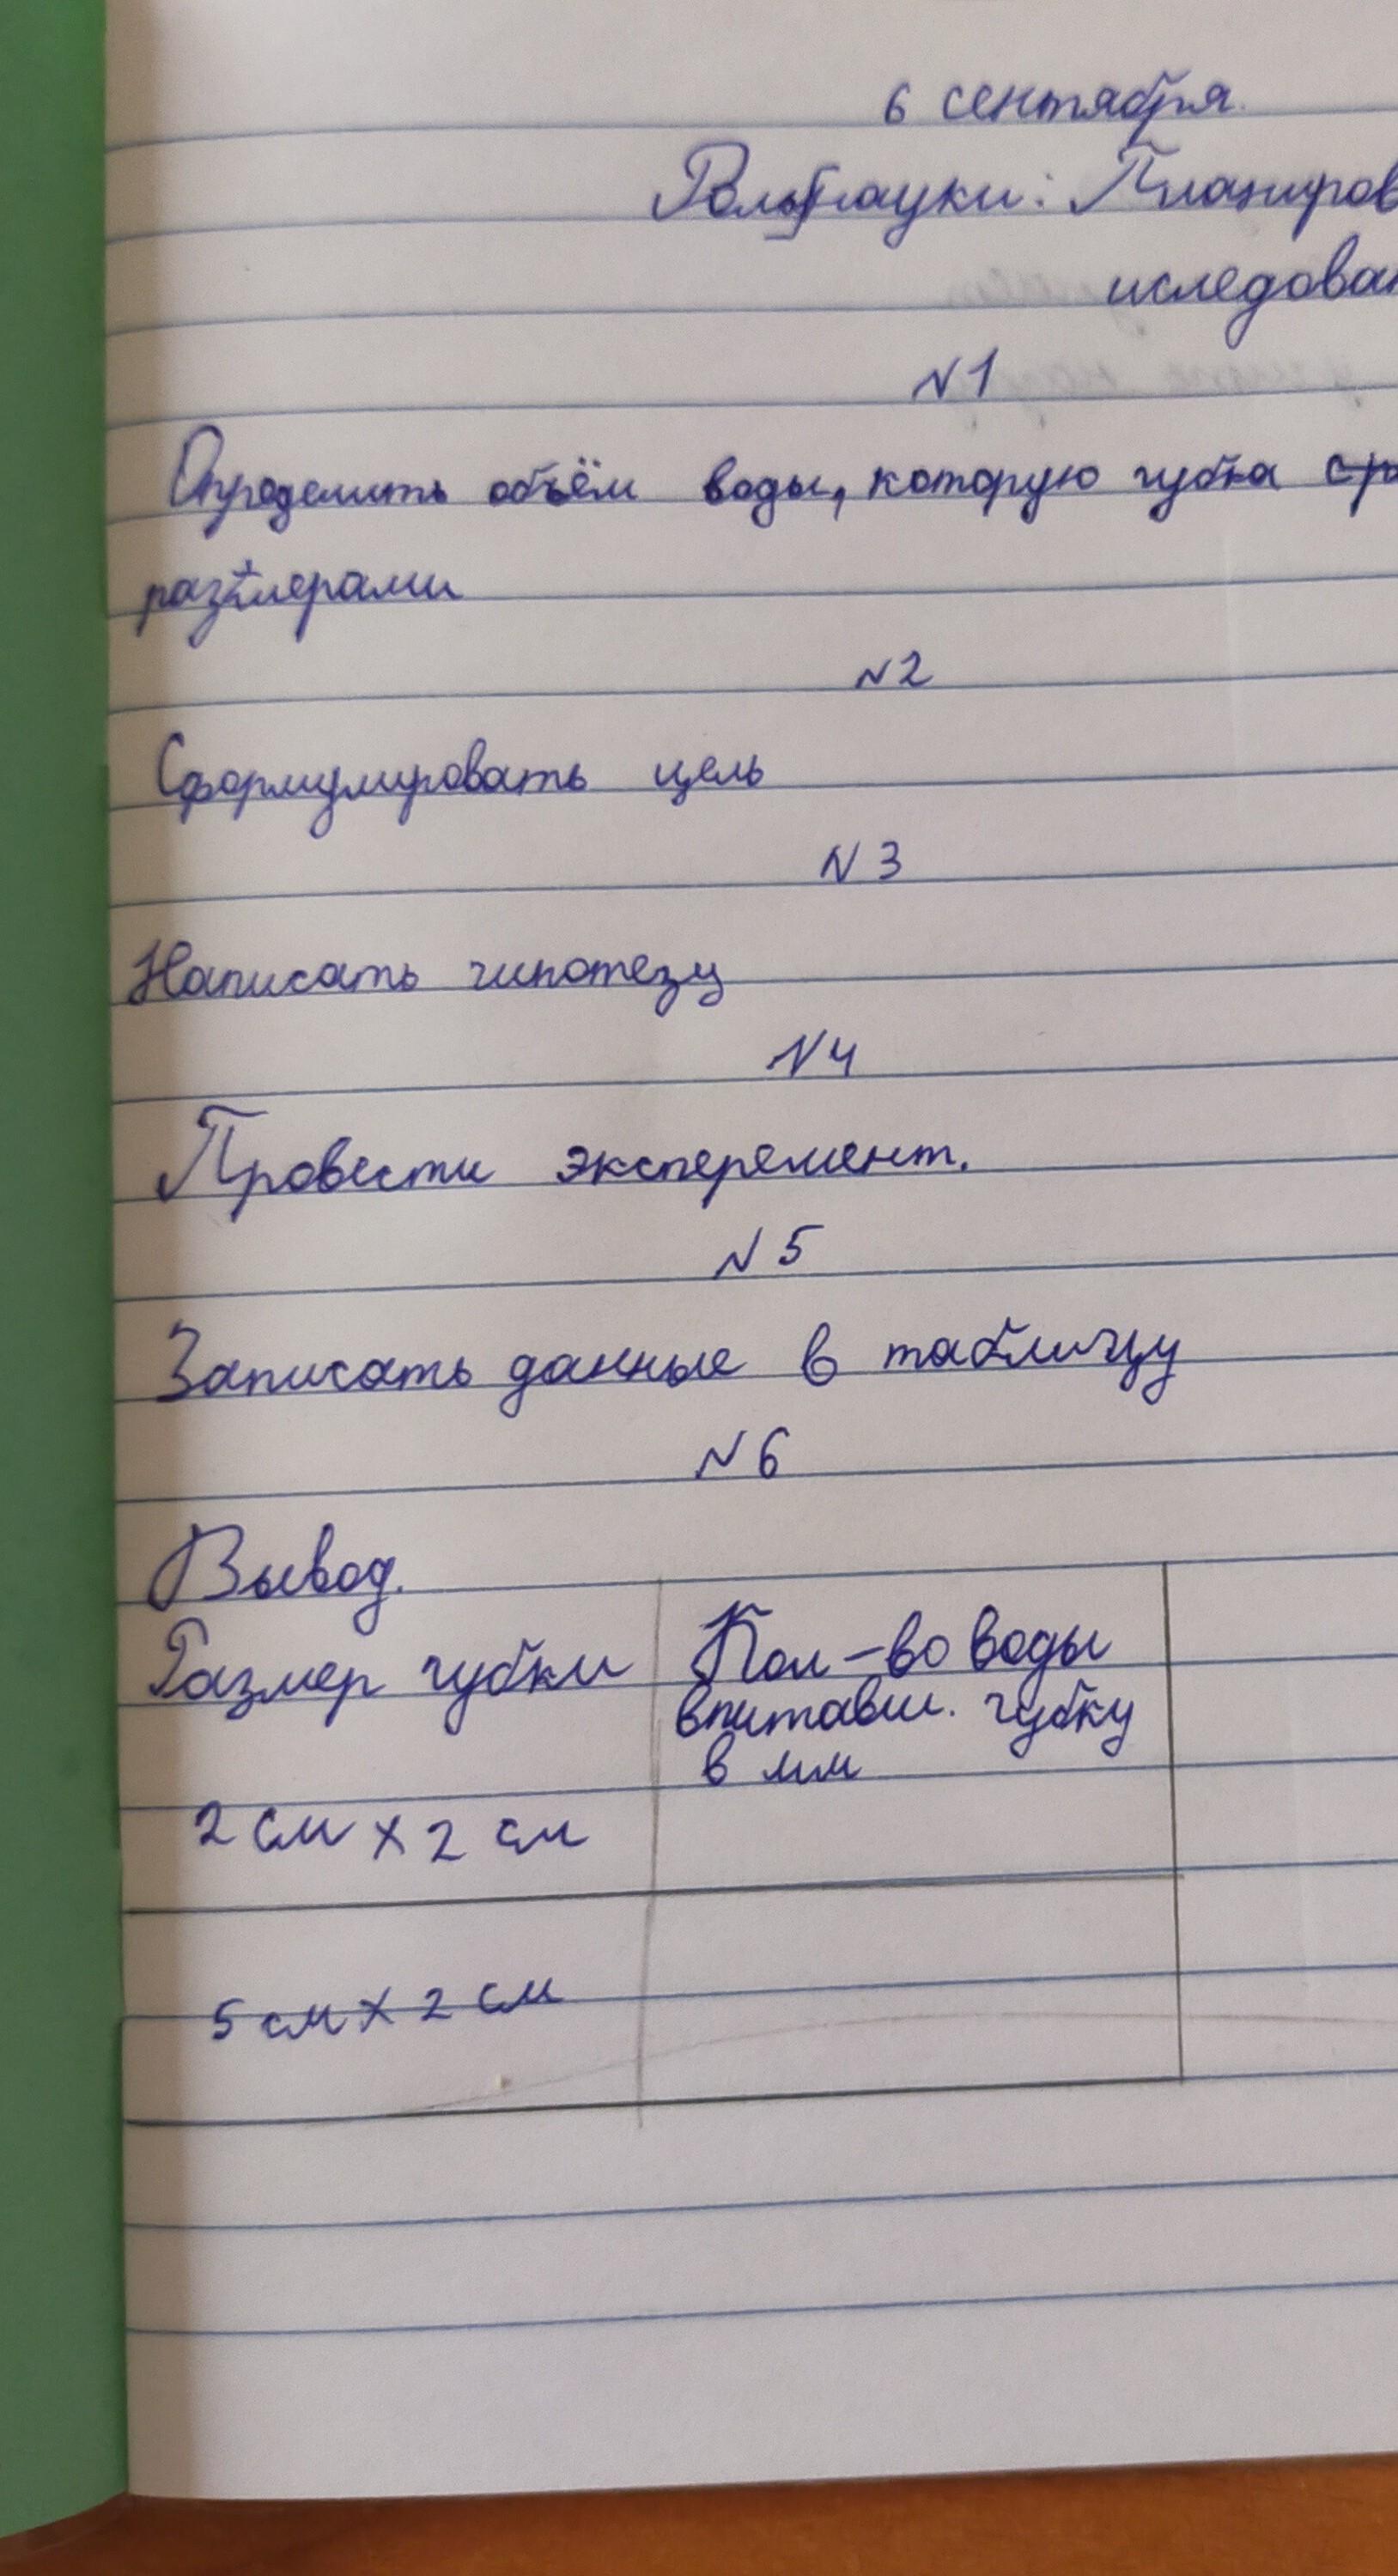 6 сентября.
Роль науки: Планиров
иследован
N1
Определить объём воды, которую губка
размерами
N2
Сформулировать цель
N3
Написать гипотезу
N4
Провести эксперемент.
N5
Записать данные в таблицу
N6
Вывод.
Размер губки Кол-во воды
впитавш. губку
в мм
2 см х 2 см
5 см х 2 см